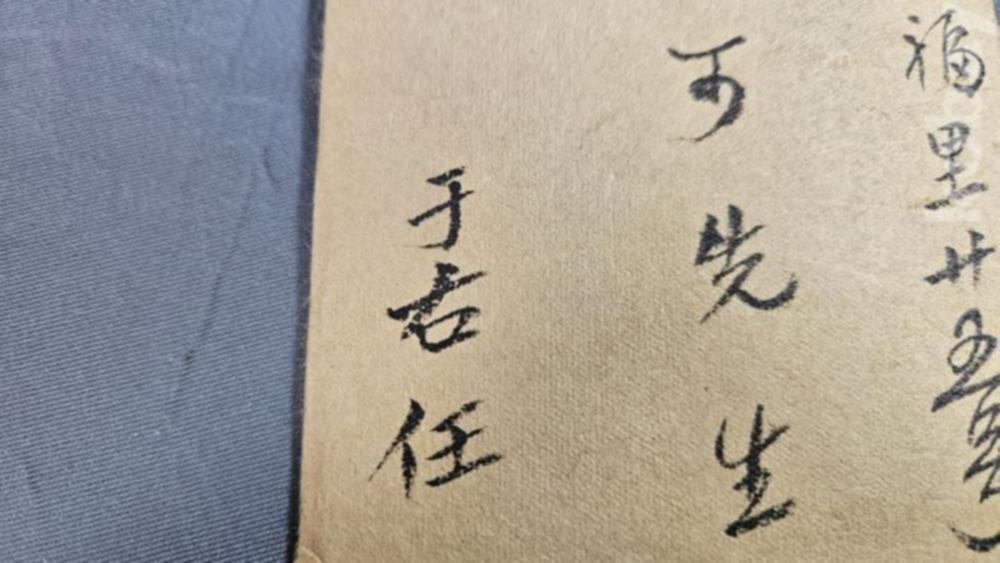 福里廿五号
可先生
于右任